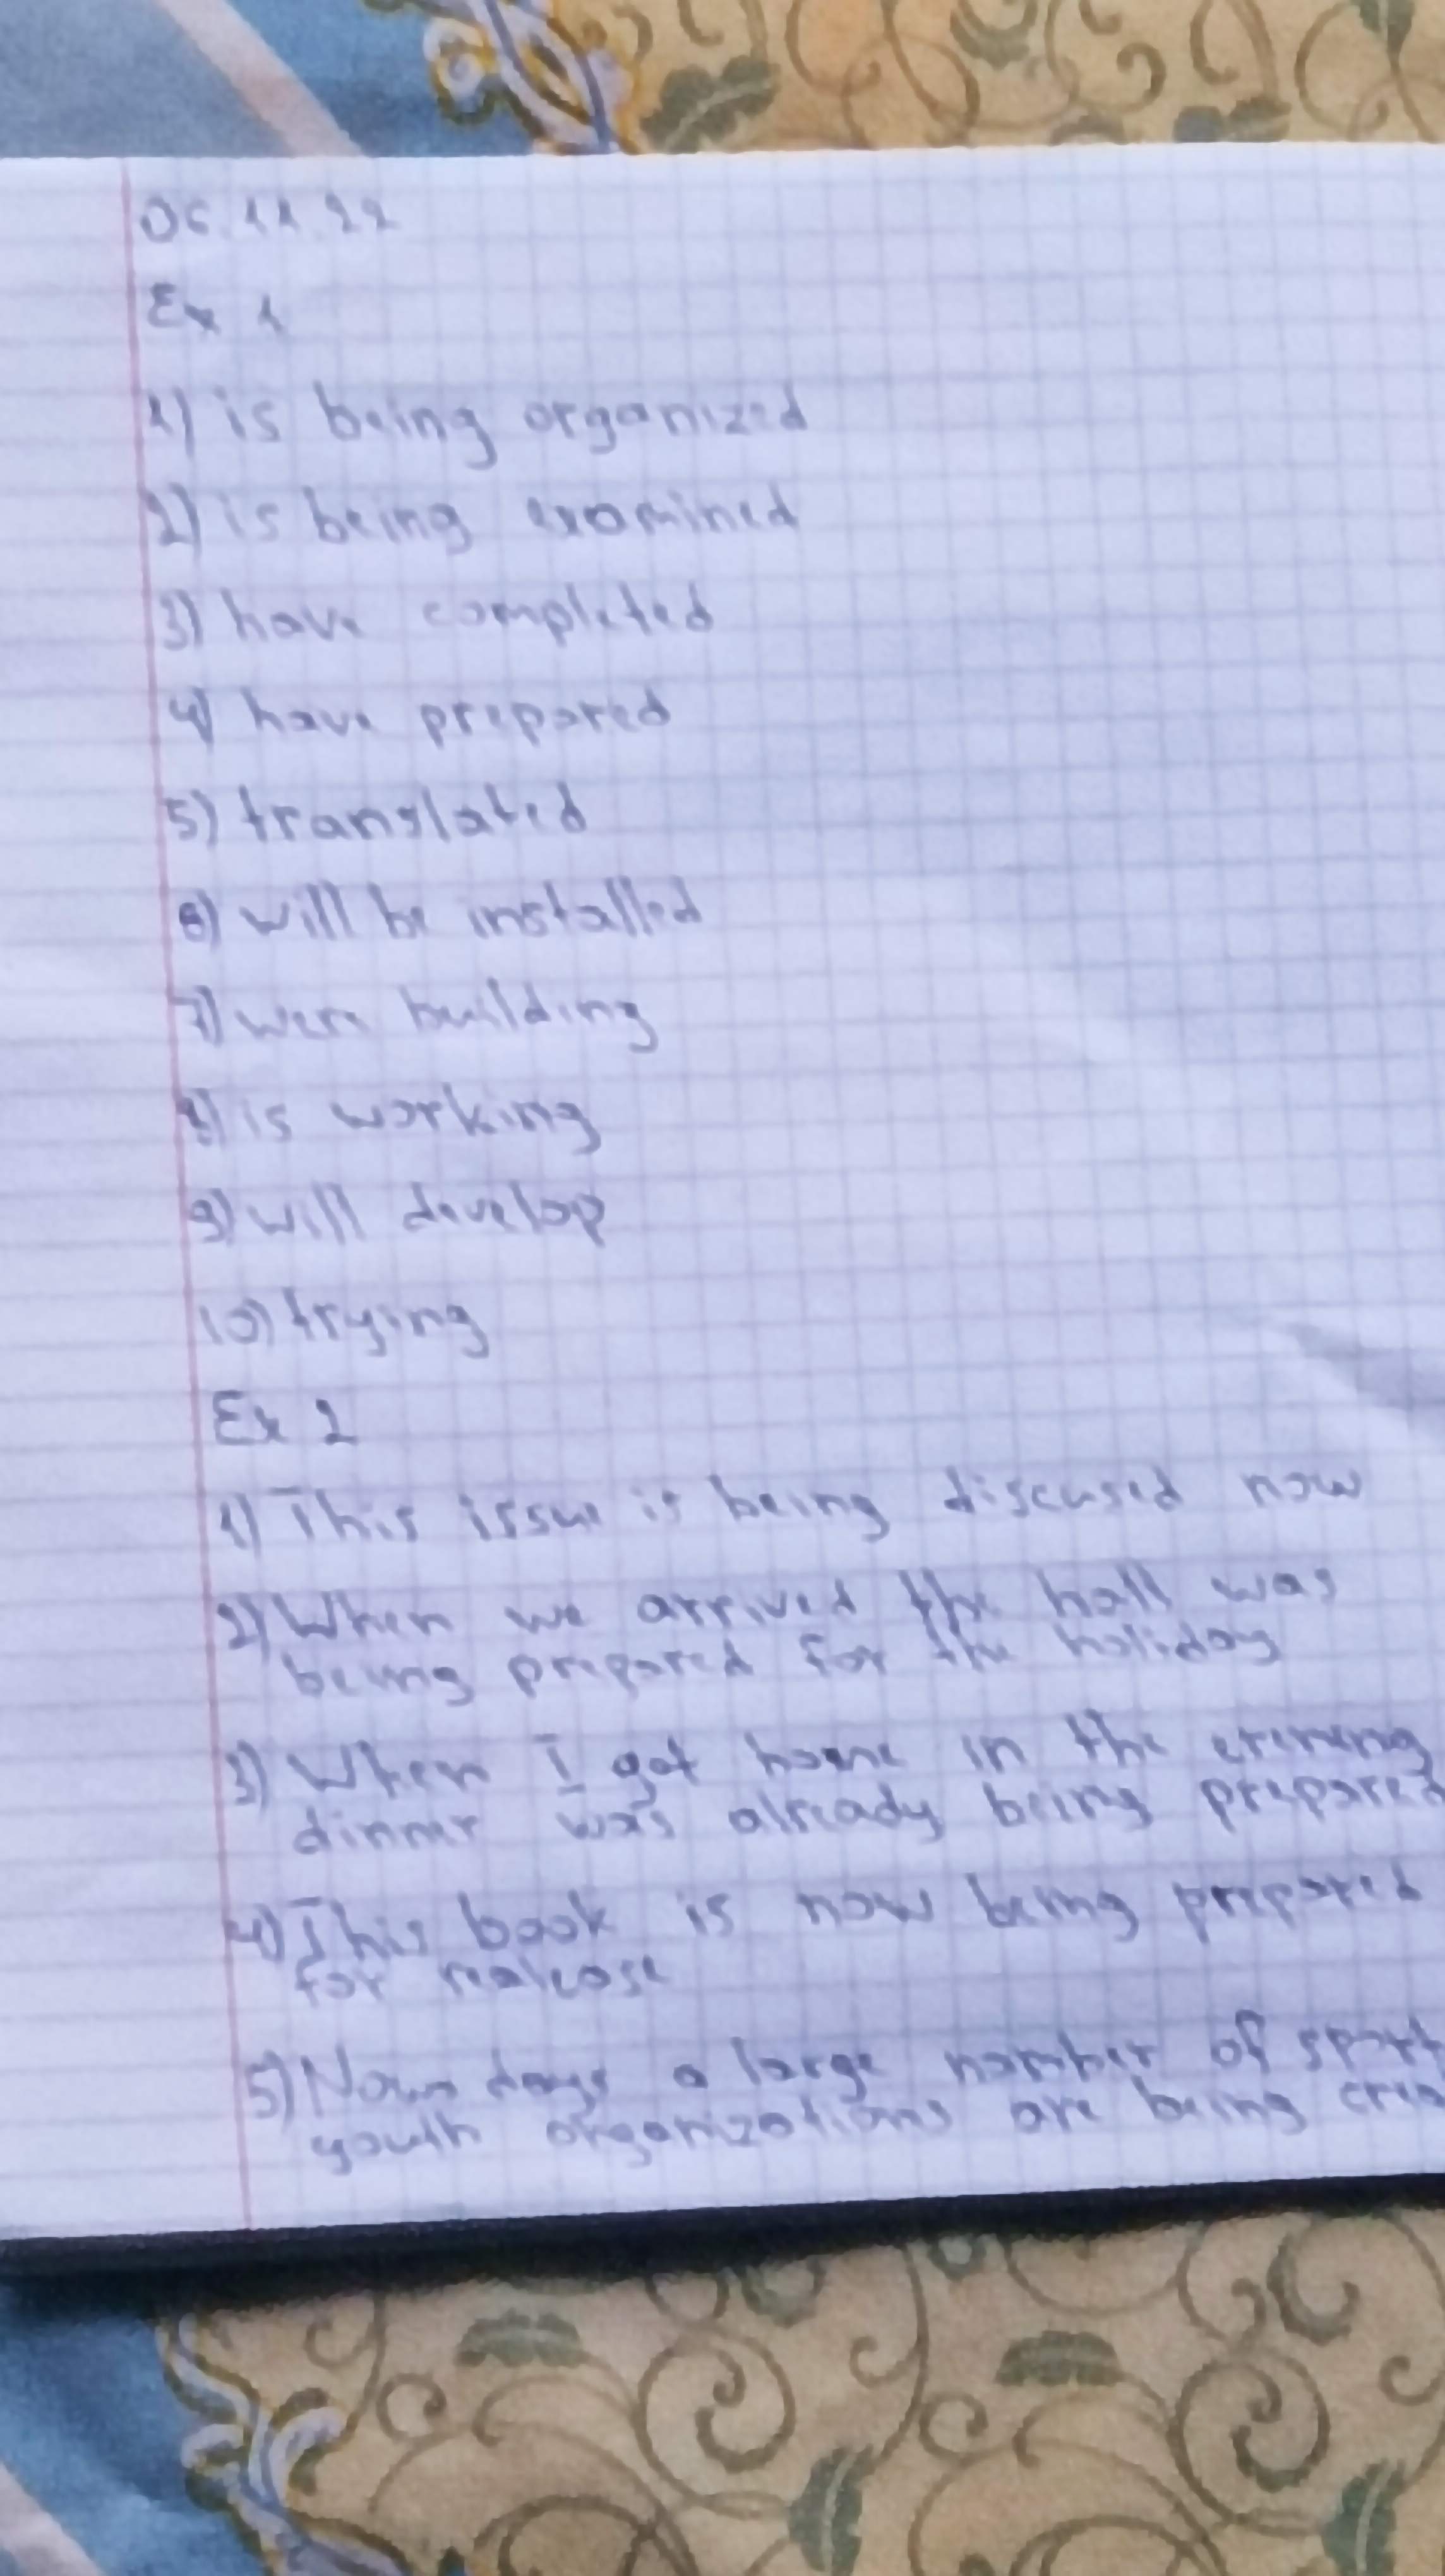 06.11.22
Ex 1
1) is being organized
2) is being examined
3) have completed
4) have prepared
5) translated
6) will be installed
7) were building
8) is working
9) will develop
10) trying
Ex 2
1) This issue is being discused now
2) When we arrived the hall was
being prepared for the holiday
3) When I got home in the
dinner was already being prepared
4) This book is now being prepared
for
5) Now days a large number of sport
youth organizations are being